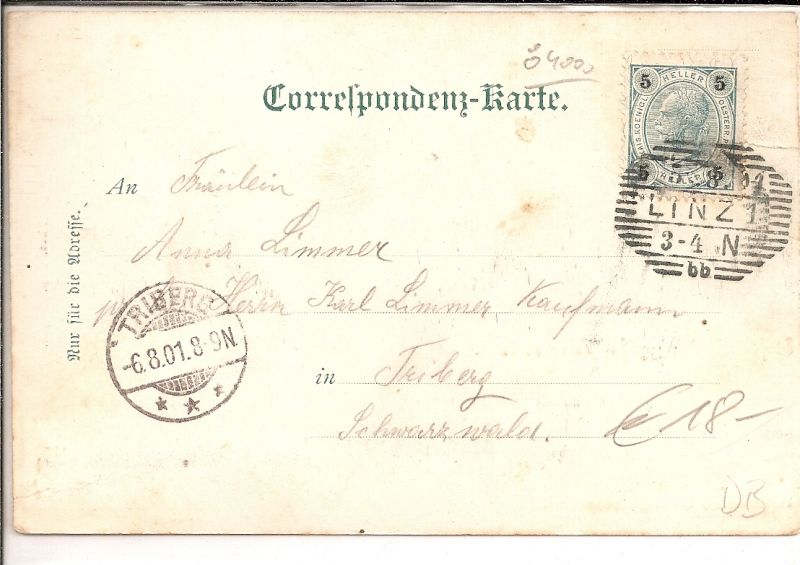 ö 4000
Correspondenz-Karte.
5 HELLER 5
5 HELLER 5
8 01
LINZ 1
3-4 N
bb
An Fräulein
Anna Limmer
Herrn Karl Limmer, Kaufmann
in Triberg
Schwarzwald.
Nur für die Adresse.
TRIBERG
-6.8.01.8-9N.
€ 18-
DB